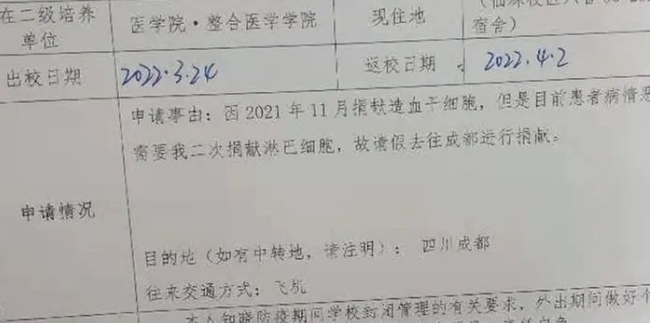 在二级培养单位
医学院·整合医学学院
现住地
宿舍）
出校日期
2022.3.24
返校日期
2022.4.2
申请情况
申请事由：因2021年11月捐献造血干细胞，但是目前患者病情恶
需要我二次捐献淋巴细胞，故请假去往成都进行捐献。
目的地（如有中转地，请注明）：四川成都
往来交通方式：飞机
本人知晓防疫期间学校封闭管理的有关要求，外出期间做好个